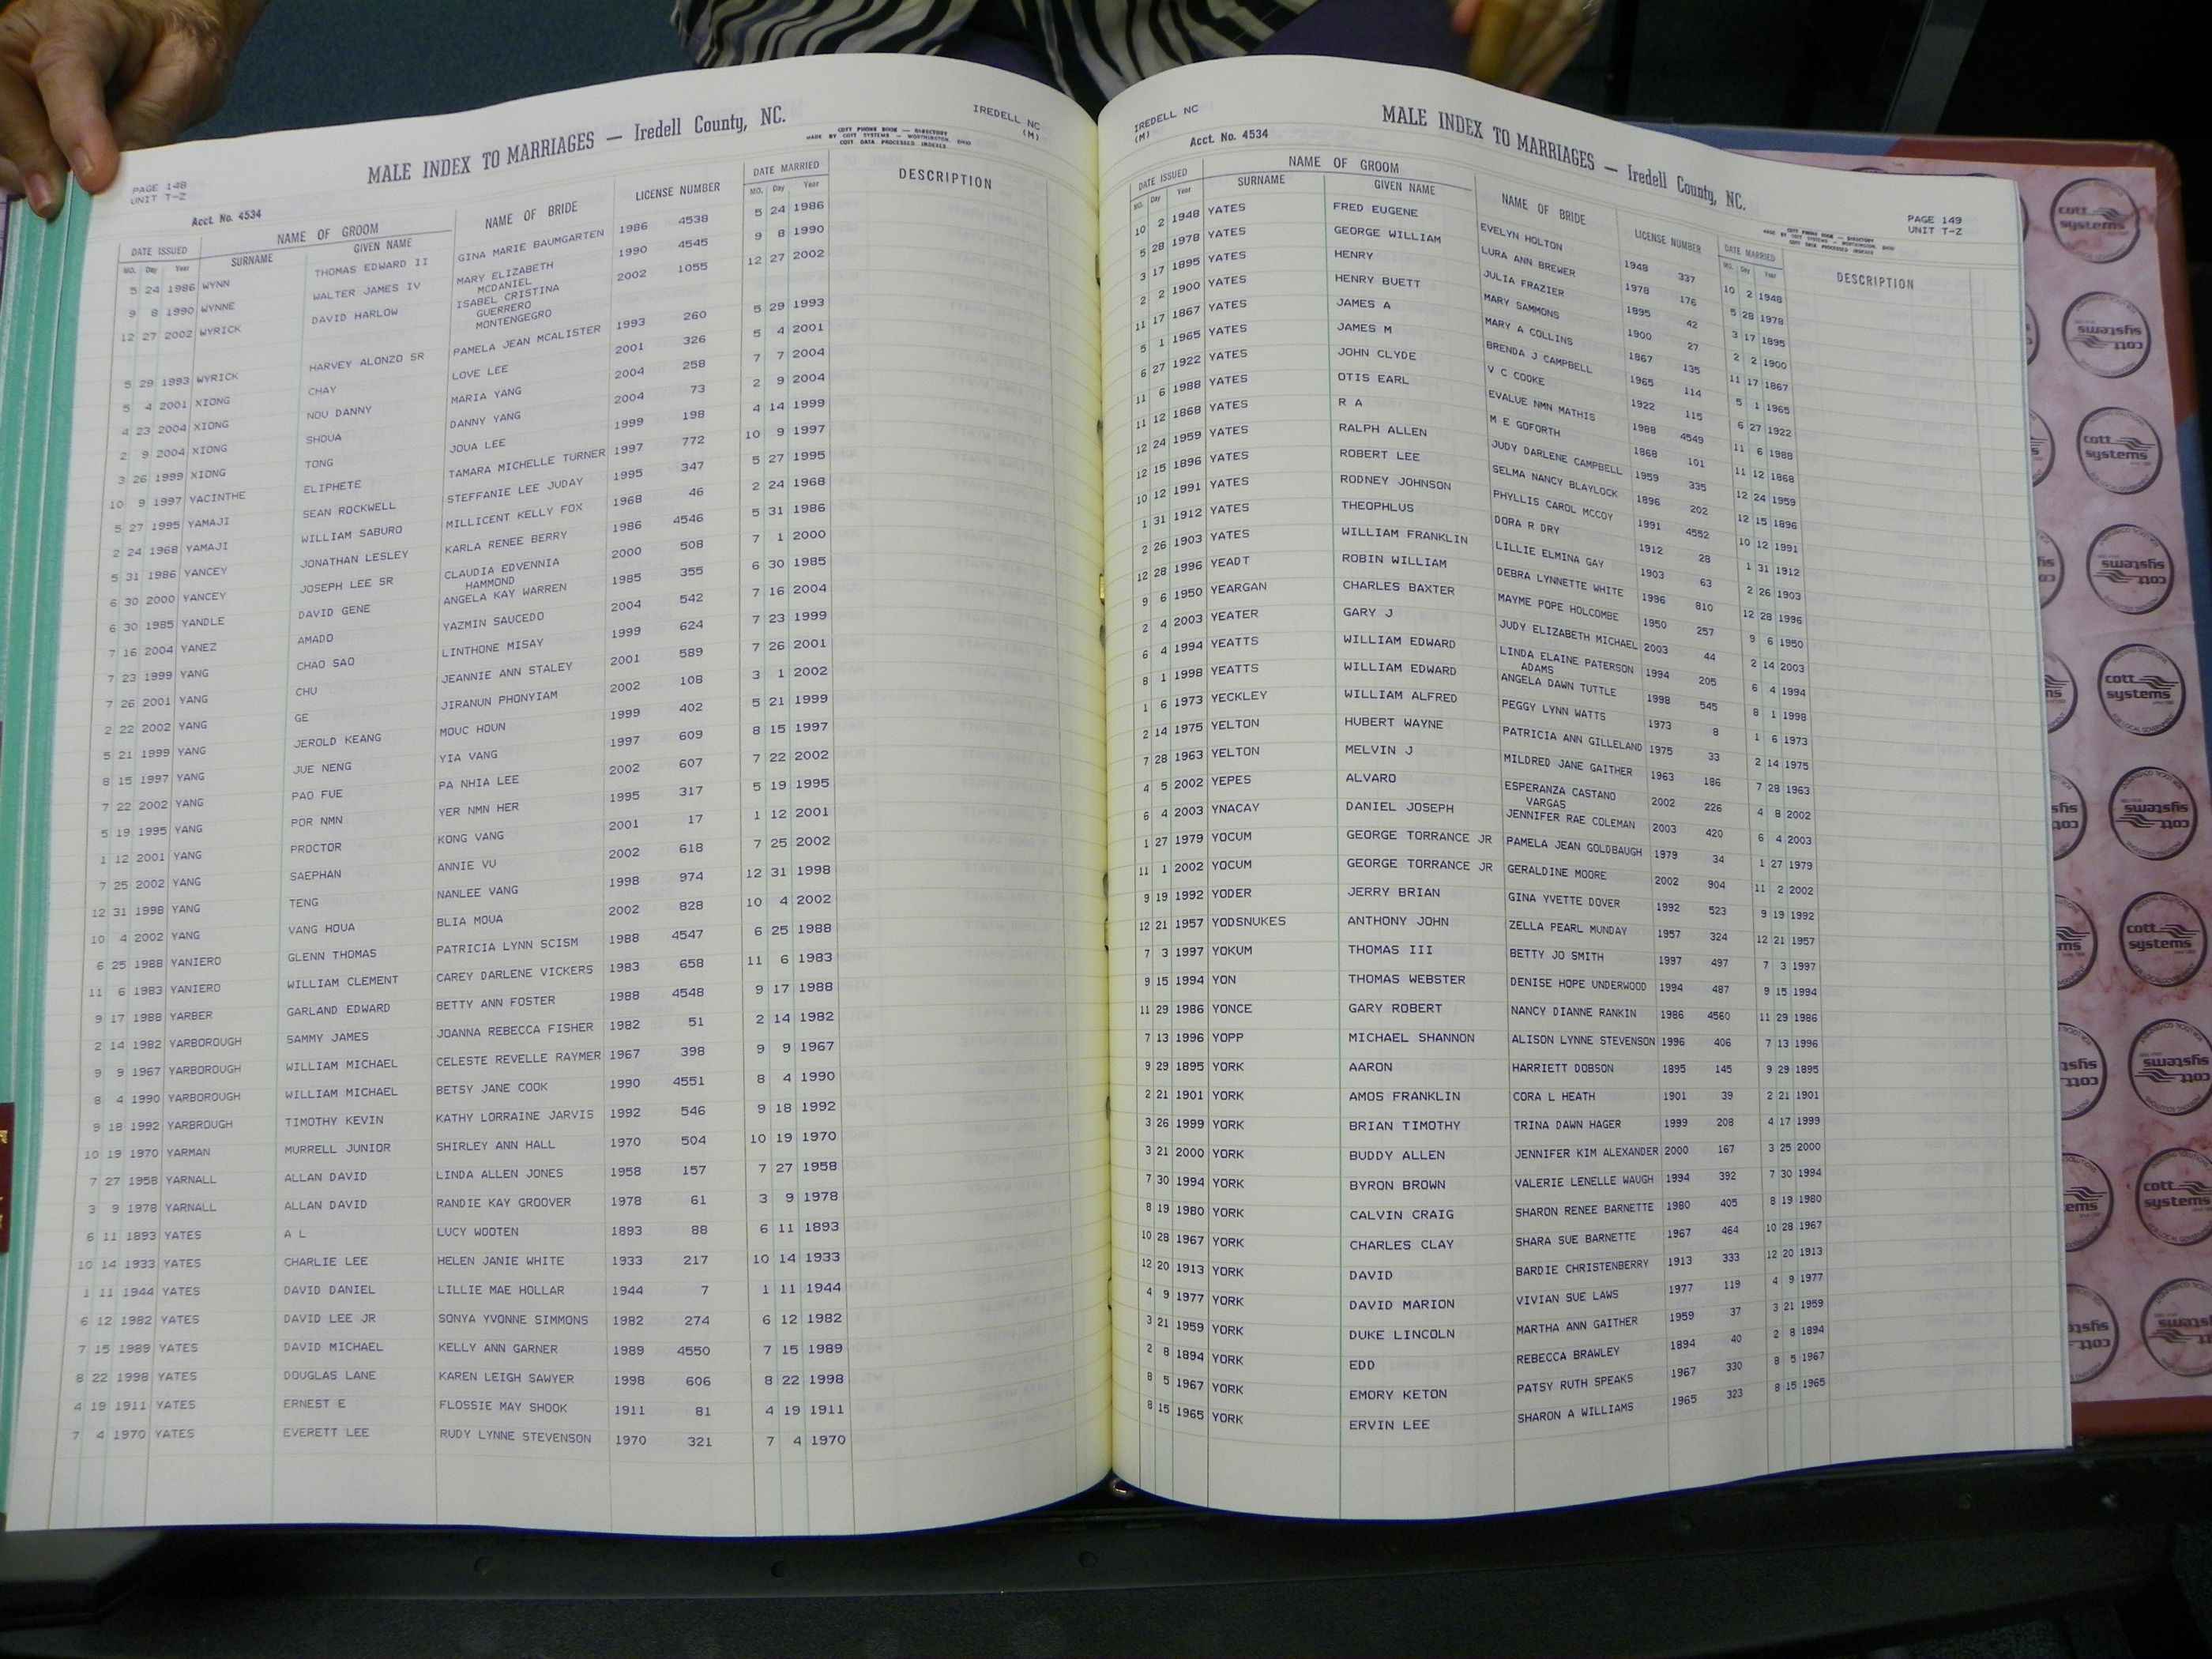 PAGE 148
UNIT T-Z
MALE INDEX TO MARRIAGES — Iredell County, NC.
COTT PHONE BOOK — DIRECTORY
MADE BY COTT SYSTEMS — WORTHINGTON, OHIO
COTT DATA PROCESSED INDEXES
IREDELL NC
(M)
Acct. No. 4534
DATE ISSUED NAME OF GROOM NAME OF BRIDE LICENSE NUMBER DATE MARRIED DESCRIPTION
MO. Day Year SURNAME GIVEN NAME MO. Day Year
5 24 1986 WYNN THOMAS EDWARD II GINA MARIE BAUMGARTEN 1986 4538 5 24 1986
9 8 1990 WYNNE WALTER JAMES IV MARY ELIZABETH 1990 4545 9 8 1990
MCDANIEL
12 27 2002 WYRICK DAVID HARLOW ISABEL CRISTINA 2002 1055 12 27 2002
GUERRERO
MONTENGEGRO
5 29 1993 WYRICK HARVEY ALONZO SR PAMELA JEAN MCALISTER 1993 260 5 29 1993
5 4 2001 XIONG CHAY LOVE LEE 2001 326 5 4 2001
4 23 2004 XIONG NOU DANNY MARIA YANG 2004 258 7 7 2004
2 9 2004 XIONG SHOUA DANNY YANG 2004 73 2 9 2004
3 26 1999 XIONG TONG JOUA LEE 1999 198 4 14 1999
10 9 1997 YACINTHE ELIPHETE TAMARA MICHELLE TURNER 1997 772 10 9 1997
5 27 1995 YAMAJI SEAN ROCKWELL STEFFANIE LEE JUDAY 1995 347 5 27 1995
2 24 1968 YAMAJI WILLIAM SABURO MILLICENT KELLY FOX 1968 46 2 24 1968
5 31 1986 YANCEY JONATHAN LESLEY KARLA RENEE BERRY 1986 4546 5 31 1986
6 30 2000 YANCEY JOSEPH LEE SR CLAUDIA EDVENNIA 2000 508 7 1 2000
HAMMOND
6 30 1985 YANDLE DAVID GENE ANGELA KAY WARREN 1985 355 6 30 1985
7 16 2004 YANEZ AMADO YAZMIN SAUCEDO 2004 542 7 16 2004
7 23 1999 YANG CHAO SAO LINTHONE MISAY 1999 624 7 23 1999
7 26 2001 YANG CHU JEANNIE ANN STALEY 2001 589 7 26 2001
2 22 2002 YANG GE JIRANUN PHONYIAM 2002 108 3 1 2002
5 21 1999 YANG JEROLD KEANG MOUC HOUN 1999 402 5 21 1999
8 15 1997 YANG JUE NENG YIA VANG 1997 609 8 15 1997
7 22 2002 YANG PAO FUE PA NHIA LEE 2002 607 7 22 2002
5 19 1995 YANG POR NMN YER NMN HER 1995 317 5 19 1995
1 12 2001 YANG PROCTOR KONG VANG 2001 17 1 12 2001
7 25 2002 YANG SAEPHAN ANNIE VU 2002 618 7 25 2002
12 31 1998 YANG TENG NANLEE VANG 1998 974 12 31 1998
10 4 2002 YANG VANG HOUA BLIA MOUA 2002 828 10 4 2002
6 25 1988 YANIERO GLENN THOMAS PATRICIA LYNN SCISM 1988 4547 6 25 1988
11 6 1983 YANIERO WILLIAM CLEMENT CAREY DARLENE VICKERS 1983 658 11 6 1983
9 17 1988 YARBER GARLAND EDWARD BETTY ANN FOSTER 1988 4548 9 17 1988
2 14 1982 YARBOROUGH SAMMY JAMES JOANNA REBECCA FISHER 1982 51 2 14 1982
9 9 1967 YARBOROUGH WILLIAM MICHAEL CELESTE REVELLE RAYMER 1967 398 9 9 1967
8 4 1990 YARBOROUGH WILLIAM MICHAEL BETSY JANE COOK 1990 4551 8 4 1990
9 18 1992 YARBROUGH TIMOTHY KEVIN KATHY LORRAINE JARVIS 1992 546 9 18 1992
10 19 1970 YARMAN MURRELL JUNIOR SHIRLEY ANN HALL 1970 504 10 19 1970
7 27 1958 YARNALL ALLAN DAVID LINDA ALLEN JONES 1958 157 7 27 1958
3 9 1978 YARNALL ALLAN DAVID RANDIE KAY GROOVER 1978 61 3 9 1978
6 11 1893 YATES A L LUCY WOOTEN 1893 88 6 11 1893
10 14 1933 YATES CHARLIE LEE HELEN JANIE WHITE 1933 217 10 14 1933
1 11 1944 YATES DAVID DANIEL LILLIE MAE HOLLAR 1944 7 1 11 1944
6 12 1982 YATES DAVID LEE JR SONYA YVONNE SIMMONS 1982 274 6 12 1982
7 15 1989 YATES DAVID MICHAEL KELLY ANN GARNER 1989 4550 7 15 1989
8 22 1998 YATES DOUGLAS LANE KAREN LEIGH SAWYER 1998 606 8 22 1998
4 19 1911 YATES ERNEST E FLOSSIE MAY SHOOK 1911 81 4 19 1911
7 4 1970 YATES EVERETT LEE RUDY LYNNE STEVENSON 1970 321 7 4 1970
IREDELL NC
(M)
Acct. No. 4534
MALE INDEX TO MARRIAGES — Iredell County, NC.
COTT PHONE BOOK — DIRECTORY
MADE BY COTT SYSTEMS — WORTHINGTON, OHIO
COTT DATA PROCESSED INDEXES
PAGE 149
UNIT T-Z
DATE ISSUED NAME OF GROOM NAME OF BRIDE LICENSE NUMBER DATE MARRIED DESCRIPTION
MO. Day Year SURNAME GIVEN NAME Mo. Day Year
10 2 1948 YATES FRED EUGENE EVELYN HOLTON 1948 337 10 2 1948
5 28 1978 YATES GEORGE WILLIAM LURA ANN BREWER 1978 176 5 28 1978
3 17 1895 YATES HENRY JULIA FRAZIER 1895 42 3 17 1895
2 2 1900 YATES HENRY BUETT MARY SAMMONS 1900 27 2 2 1900
11 17 1867 YATES JAMES A MARY A COLLINS 1867 135 11 17 1867
5 1 1965 YATES JAMES M BRENDA J CAMPBELL 1965 114 5 1 1965
6 27 1922 YATES JOHN CLYDE V C COOKE 1922 115 6 27 1922
11 6 1988 YATES OTIS EARL EVALUE NMN MATHIS 1988 4549 11 6 1988
11 12 1868 YATES R A M E GOFORTH 1868 101 11 12 1868
12 24 1959 YATES RALPH ALLEN JUDY DARLENE CAMPBELL 1959 335 12 24 1959
12 15 1896 YATES ROBERT LEE SELMA NANCY BLAYLOCK 1896 202 12 15 1896
10 12 1991 YATES RODNEY JOHNSON PHYLLIS CAROL MCCOY 1991 4552 10 12 1991
1 31 1912 YATES THEOPHLUS DORA R DRY 1912 28 1 31 1912
2 26 1903 YATES WILLIAM FRANKLIN LILLIE ELMINA GAY 1903 63 2 26 1903
12 28 1996 YEADT ROBIN WILLIAM DEBRA LYNNETTE WHITE 1996 810 12 28 1996
9 6 1950 YEARGAN CHARLES BAXTER MAYME POPE HOLCOMBE 1950 257 9 6 1950
2 4 2003 YEATER GARY J JUDY ELIZABETH MICHAEL 2003 44 2 14 2003
6 4 1994 YEATTS WILLIAM EDWARD LINDA ELAINE PATERSON 1994 205 6 4 1994
ADAMS
8 1 1998 YEATTS WILLIAM EDWARD ANGELA DAWN TUTTLE 1998 545 8 1 1998
1 6 1973 YECKLEY WILLIAM ALFRED PEGGY LYNN WATTS 1973 8 1 6 1973
2 14 1975 YELTON HUBERT WAYNE PATRICIA ANN GILLELAND 1975 33 2 14 1975
7 28 1963 YELTON MELVIN J MILDRED JANE GAITHER 1963 186 7 28 1963
4 5 2002 YEPES ALVARO ESPERANZA CASTANO 2002 226 4 8 2002
VARGAS
6 4 2003 YNACAY DANIEL JOSEPH JENNIFER RAE COLEMAN 2003 420 6 4 2003
1 27 1979 YOCUM GEORGE TORRANCE JR PAMELA JEAN GOLDBAUGH 1979 34 1 27 1979
11 1 2002 YOCUM GEORGE TORRANCE JR GERALDINE MOORE 2002 904 11 2 2002
9 19 1992 YODER JERRY BRIAN GINA YVETTE DOVER 1992 523 9 19 1992
12 21 1957 YODSNUKES ANTHONY JOHN ZELLA PEARL MUNDAY 1957 324 12 21 1957
7 3 1997 YOKUM THOMAS III BETTY JO SMITH 1997 497 7 3 1997
9 15 1994 YON THOMAS WEBSTER DENISE HOPE UNDERWOOD 1994 487 9 15 1994
11 29 1986 YONCE GARY ROBERT NANCY DIANNE RANKIN 1986 4560 11 29 1986
7 13 1996 YOPP MICHAEL SHANNON ALISON LYNNE STEVENSON 1996 406 7 13 1996
9 29 1895 YORK AARON HARRIETT DOBSON 1895 145 9 29 1895
2 21 1901 YORK AMOS FRANKLIN CORA L HEATH 1901 39 2 21 1901
3 26 1999 YORK BRIAN TIMOTHY TRINA DAWN HAGER 1999 208 4 17 1999
3 21 2000 YORK BUDDY ALLEN JENNIFER KIM ALEXANDER 2000 167 3 25 2000
7 30 1994 YORK BYRON BROWN VALERIE LENELLE WAUGH 1994 392 7 30 1994
8 19 1980 YORK CALVIN CRAIG SHARON RENEE BARNETTE 1980 405 8 19 1980
10 28 1967 YORK CHARLES CLAY SHARA SUE BARNETTE 1967 464 10 28 1967
12 20 1913 YORK DAVID BARDIE CHRISTENBERRY 1913 333 12 20 1913
4 9 1977 YORK DAVID MARION VIVIAN SUE LAWS 1977 119 4 9 1977
3 21 1959 YORK DUKE LINCOLN MARTHA ANN GAITHER 1959 37 3 21 1959
2 8 1894 YORK EDD REBECCA BRAWLEY 1894 40 2 8 1894
8 5 1967 YORK EMORY KETON PATSY RUTH SPEAKS 1967 330 8 5 1967
8 15 1965 YORK ERVIN LEE SHARON A WILLIAMS 1965 323 8 15 1965
cott
systems
cott
systems
cott
systems
cott
systems
cott
systems
cott
systems
cott
systems
cott
systems
cott
systems
cott
systems